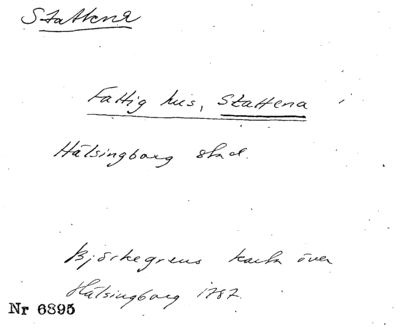 Stattena
Fattig hus, Stattena
Hälsingborg stad.
Björkegrens karta över
Hälsingborg 1787.
Nr 6895